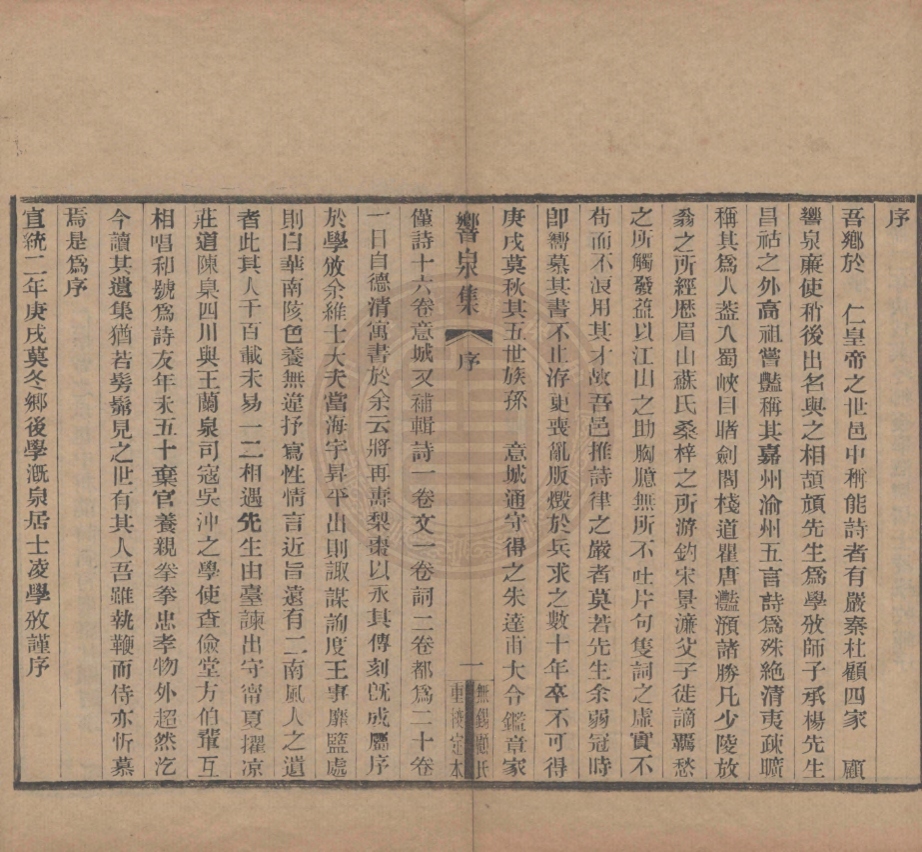 序
吾鄉於　仁皇帝之世邑中稱能詩者有嚴秦杜顧四家　顧
響泉廉使稍後出名與之相頡頏先生爲學攷師子承楊先生
昌祜之外高祖嘗豔稱其嘉州渝州五言詩爲殊絕清夷疎曠
稱其爲人葢入蜀峽目賭劍閣棧道瞿唐灩澦諸勝凡少陵放
翁之所經歷眉山蘇氏桑梓之所游釣宋景濂父子徙謫羈愁
之所觸發益以江山之助胸臆無所不吐片句隻詞之虛實不
苟而不浪用其才故吾邑推詩律之嚴者莫若先生余弱冠時
卽嚮慕其書不止洊更喪亂版燬於兵求之數十年卒不可得
庚戌莫秋其五世族孫　意城通守得之朱達甫大令鑑章家
響泉集　序　一　無錫顧氏重校定本
僅詩十六卷意城又補輯詩一卷文一卷詞二卷都爲二十卷
一日自德清寓書於余云將再壽梨棗以永其傳刻旣成屬序
於學攷余維士大夫當海宇昇平出則諏謀詢度王事靡盬處
則白華南陔色養無違抒寫性情言近旨遠有二南風人之遺
者此其人千百載未易一二相遇先生由臺諫出守甯夏擢凉
莊道陳臬四川與王蘭泉司寇吳沖之學使查儉堂方伯輩互
相唱和號爲詩友年未五十棄官養親拳拳忠孝物外超然迄
今讀其遺集猶若髣髴見之世有其人吾雖執鞭而侍亦忻慕
焉是爲序
宣統二年庚戌莫冬鄉後學漑泉居士凌學攷謹序